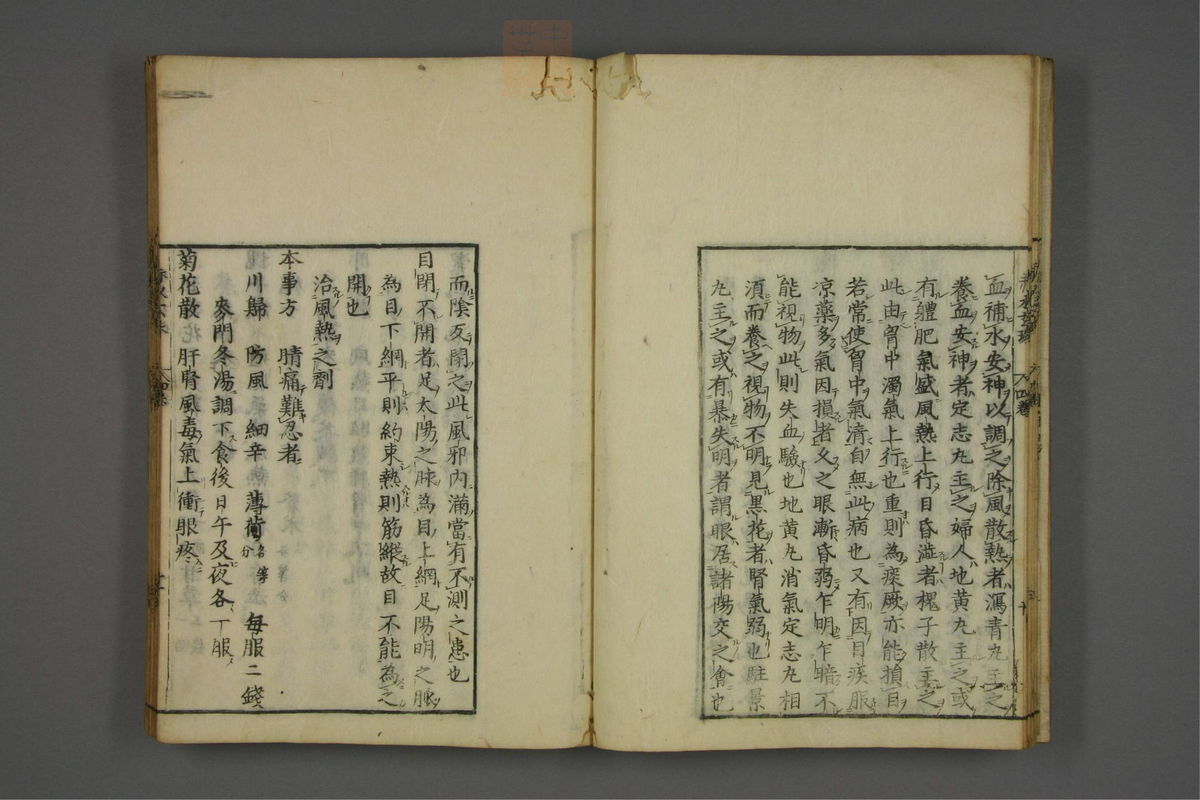 血補水安神以調之除風散熱者瀉青丸主之
養血安神者定志丸主之婦人地黄丸主之或
有體肥氣盛風熱上行目昏澁者槐子散主之
此由胷中濁氣上行也重則為痰厥亦能損目
若常使胷中氣清自無此病也又有因目疾服
凉藥多氣因損者久之眼漸昏弱乍明乍暗不
能視物此則失血驗也地黄丸消氣定志丸相
須而養之視物不明見黒花者腎氣弱也駐景
丸主之或有暴失明者謂眼居諸陽交之會也
而陰反閉之此風邪内滿當有不測之患也
目閉不開者足太陽之脉為目上網足陽明之脉
為目下網平則約束熱則筋縱故目不能為之
開也
治風熱之劑
本事方 睛痛難忍者
川歸 防風 細辛 薄荷各等分 每服二錢
麥門冬湯調下食後日午及夜各一服
菊花散 肝腎風毒氣上衝眼疼